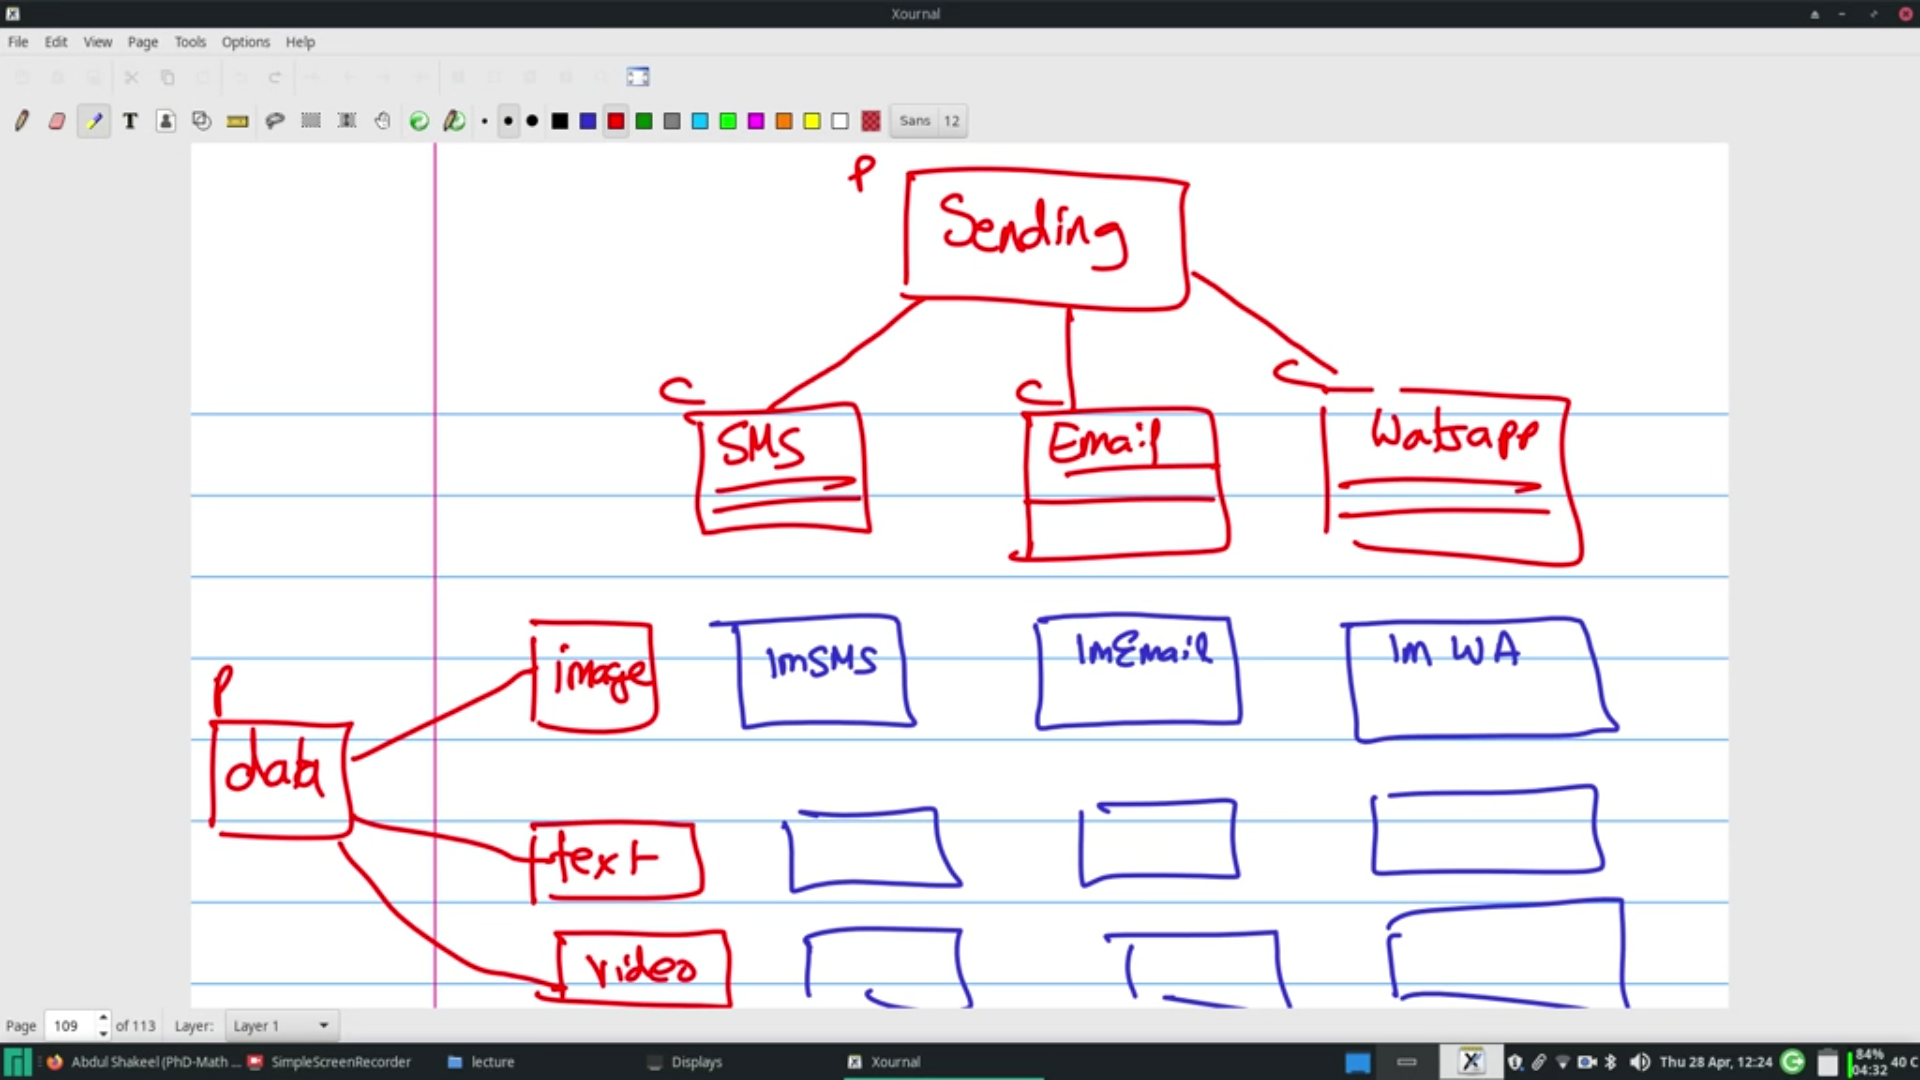 Xournal
File Edit View Page Tools Options Help
T Sans 12
P
Sending
C C C
SMS Email Watsapp
image ImSMS ImEmail Im WA
P
data
text
video
Page 109 of 113 Layer: Layer 1
Abdul Shakeel (PhD-Math ... SimpleScreenRecorder lecture Displays Xournal Thu 28 Apr, 12:24 84% 04:32 40 C